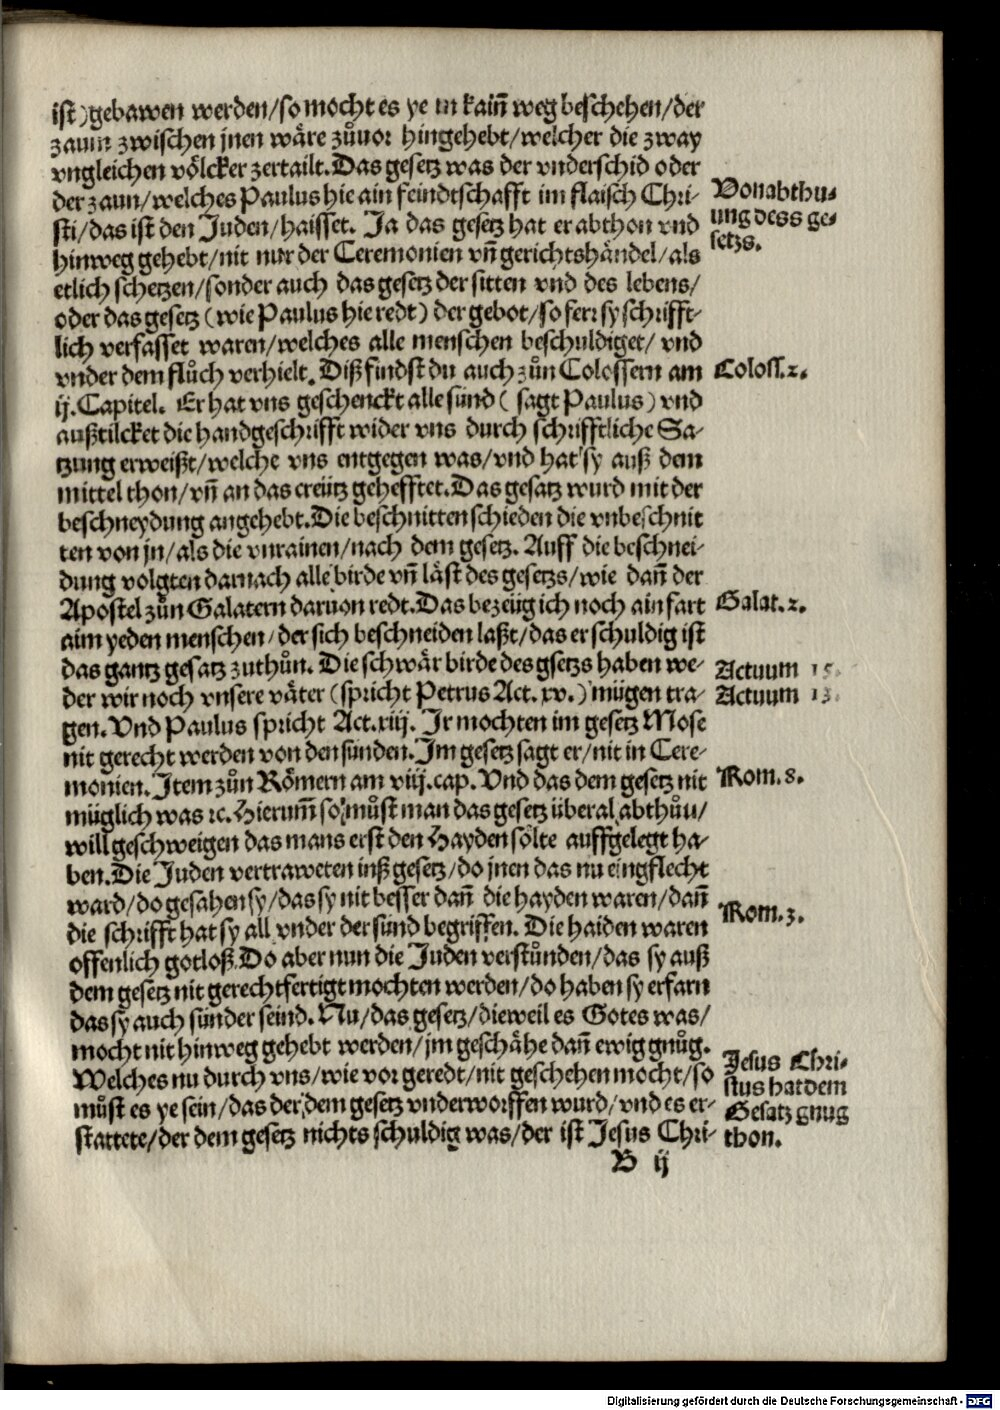 ist) gebawen werden/so mocht es ye in kaiñ weg beschehen/der
zaun zwischen jnen wäre zůuor hingehebt/welcher die zway
vngleichen völcker zertailt. Das gesetz was der vnderschid oder
der zaun/welches Paulus hie ain feindtschafft im flaisch Chri-
sti/das ist den Juden/haisset. Ja das gesetz hat er abthon vnd
hinweg gehebt/nit nur der Ceremonien vñ gerichtshändel/als
etlich schetzen/sonder auch das gesetz der sitten vnd des lebens/
oder das gesetz (wie Paulus hie redt) der gebot/so ferr sy schrifft-
lich verfasset waren/welches alle menschen beschuldiget/ vnd
vnder dem flůch verhielt. Diß findst du auch zůn Colossern am
ij. Capitel. Er hat vns geschenckt alle sünd ( sagt Paulus) vnd
außtilcket die handgeschrifft wider vns durch schrifftliche Sa-
tzung erweißt/welche vns entgegen was/vnd hat sy auß dem
mittel thon/vñ an das creütz gehefftet. Das gesatz wurd mit der
beschneydung angehebt. Die beschnitten schieden die vnbeschnit
ten von jn/als die vnrainen/nach dem gesetz. Auff die beschnei-
dung volgten darnach alle birde vñ läst des gesetzs/wie dañ der
Apostel zůn Galatern daruon redt. Das bezeüg ich noch ain fart
aim yeden menschen/der sich beschneiden laßt/das er schuldig ist
das gantz gesatz zuthůn. Die schwär birde des gsetzs haben we-
der wir noch vnsere väter (spricht Petrus Act. xv.) mügen tra-
gen. Vnd Paulus spricht Act. xiij. Jr mochten im gesetz Mose
nit gerecht werden von den sünden. Im gesetz sagt er/nit in Cere-
monien. Item zůn Römern am viij. cap. Vnd das dem gesetz nit
müglich was ꝛc. Hierum̃ so můst man das gesetz überal abthůn/
will geschweigen das mans erst den Hayden sölte auffgelegt ha-
ben. Die Juden vertraweten inß gesetz/do jnen das nu eingflecht
ward/do gesahen sy/das sy nit besser dañ die hayden waren/dañ
die schrifft hat sy all vnder der sünd begriffen. Die haiden waren
offenlich gotloß. Do aber nun die Juden verstůnden/das sy auß
dem gesetz nit gerechtfertigt mochten werden/do haben sy erfarn
das sy auch sünder seind. Nu/das gesetz/dieweil es Gotes was/
mocht nit hinweg gehebt werden/jm geschähe dañ ewig gnůg.
Welches nu durch vns/wie vor geredt/nit geschehen mocht/so
můst es ye sein/das der dem gesetz vnderworffen wurd/vnd es er-
stattete/der dem gesetz nichts schuldig was/der ist Jesus Chri-
B ij
Von abthu-
ung dess ge-
setzs.
Coloss. 2.
Galat. 2.
Actuum 15.
Actuum 13.
Rom. 8.
Rom. 3.
Jesus Chri-
stus hat dem
Gesatz gnug
thon.
Digitalisierung gefördert durch die Deutsche Forschungsgemeinschaft - DFG